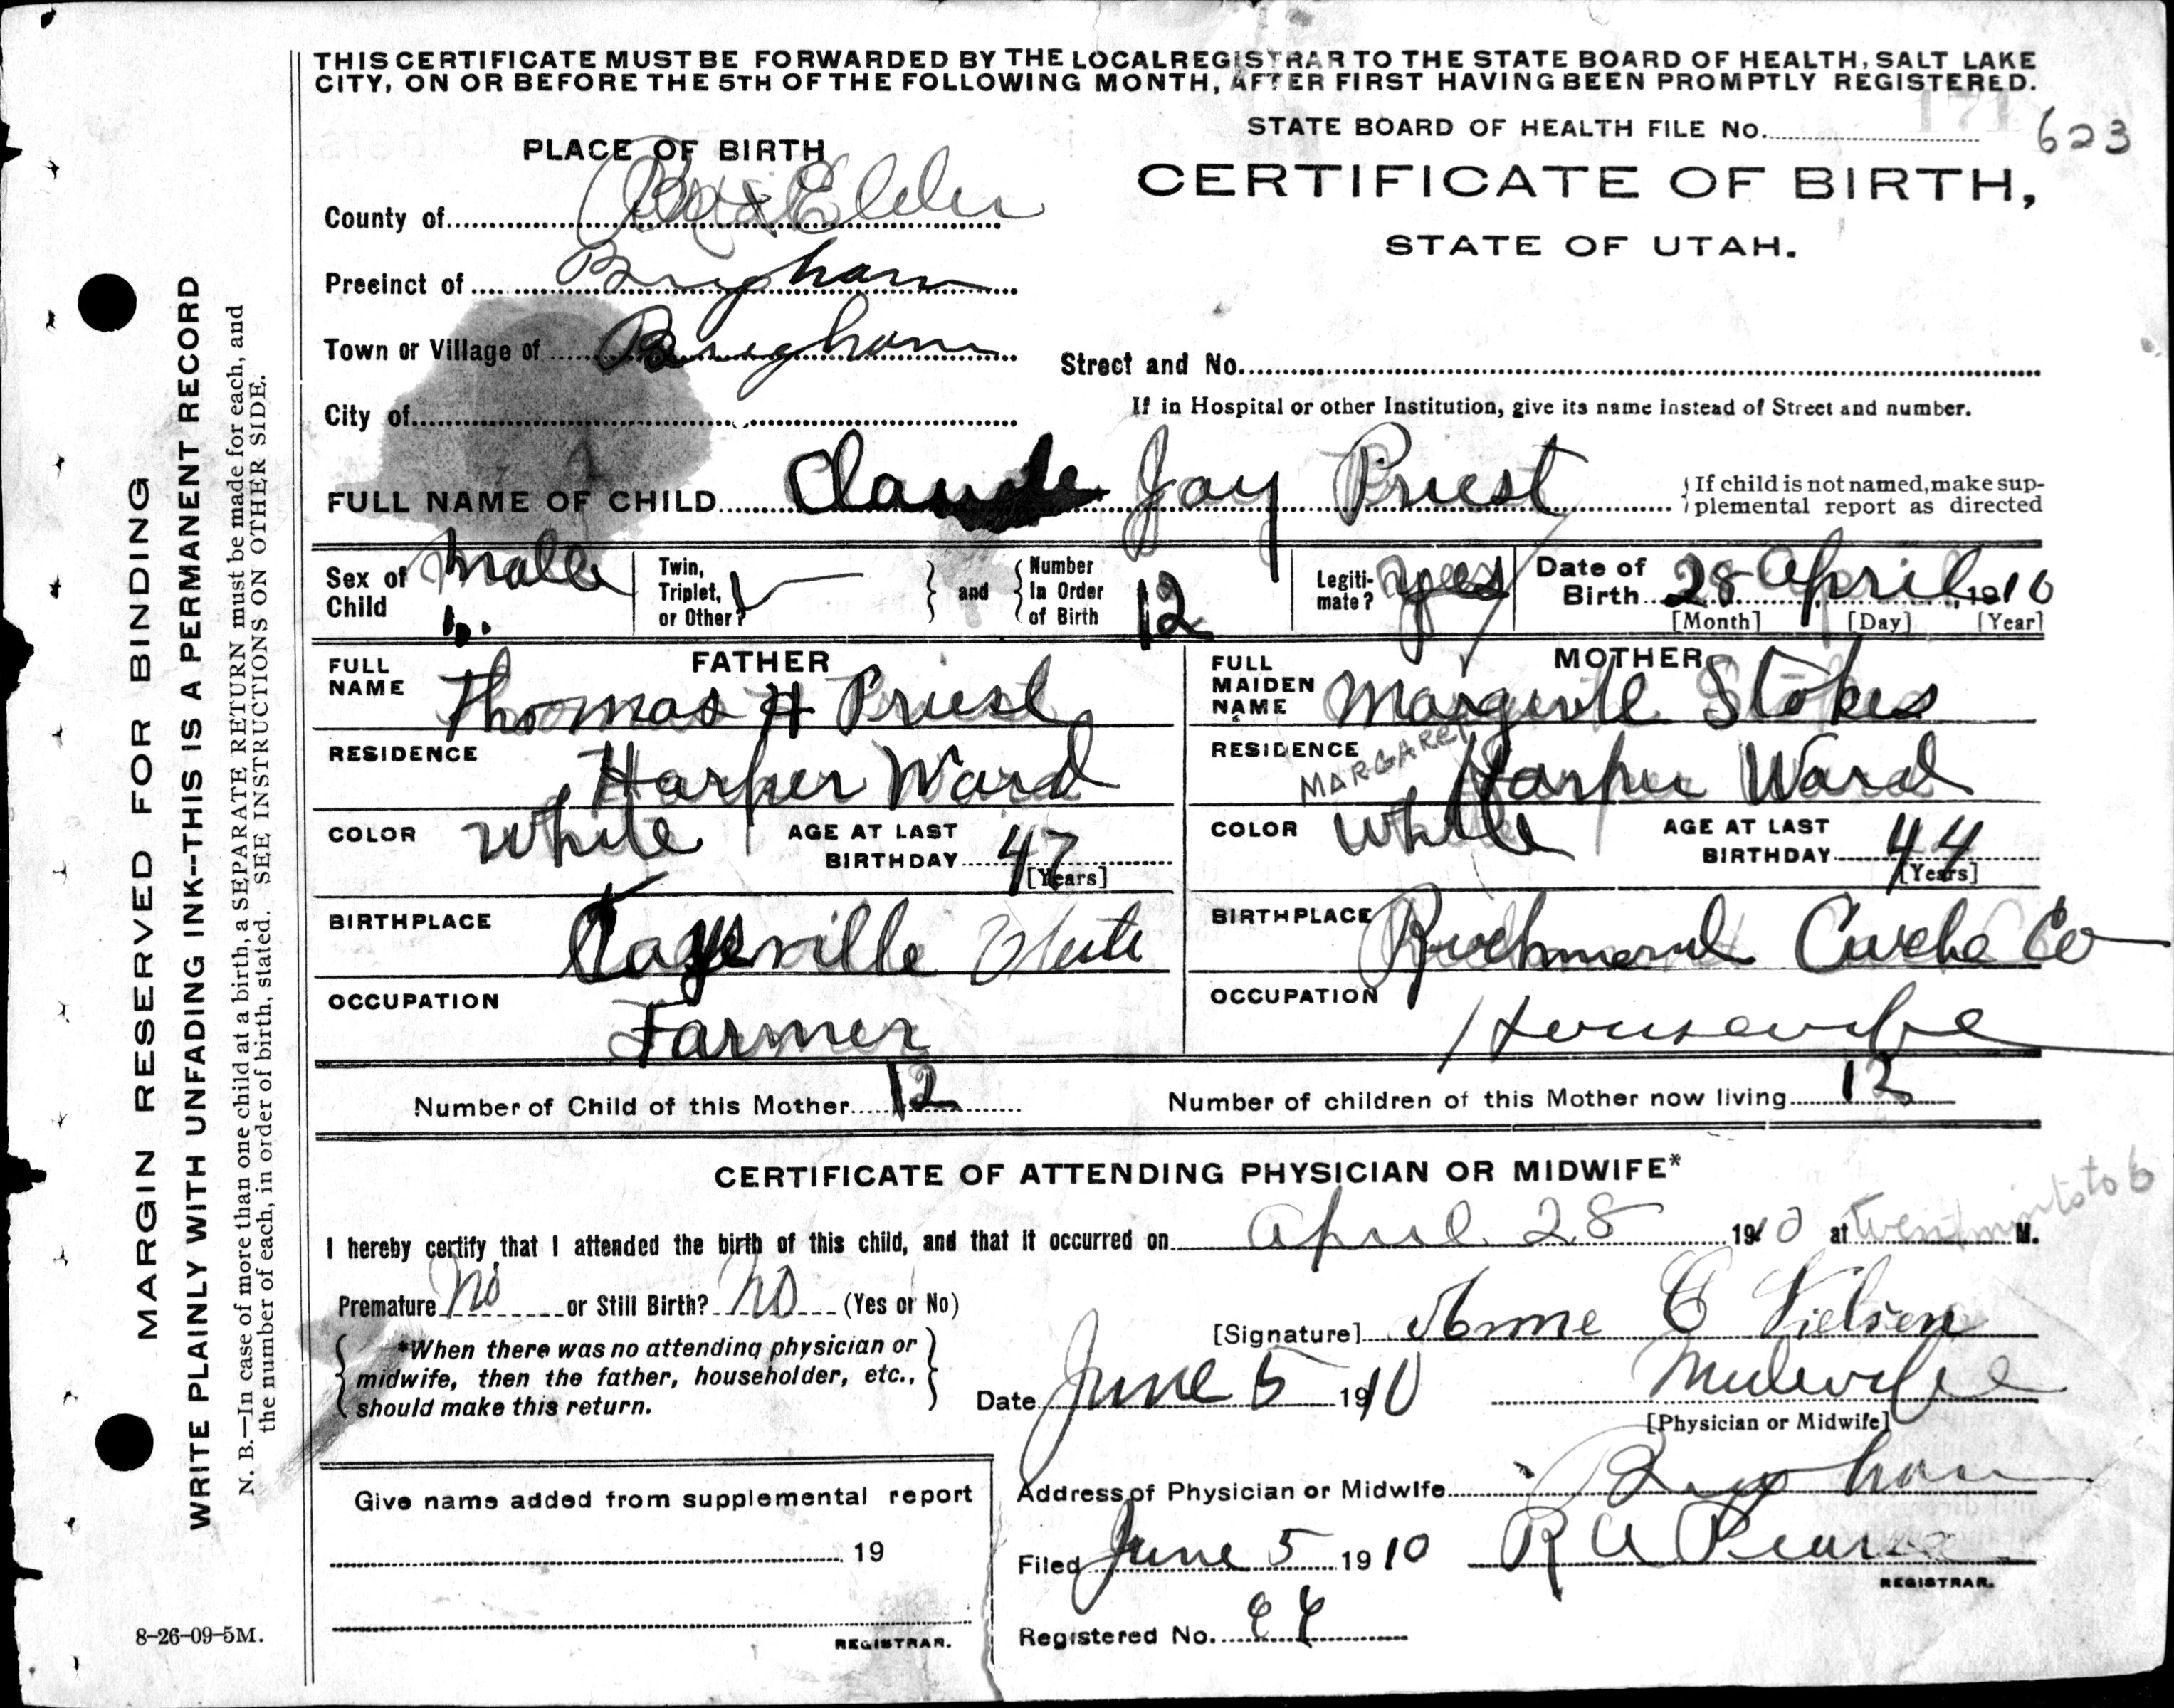 THIS CERTIFICATE MUST BE FORWARDED BY THE LOCAL REGISTRAR TO THE STATE BOARD OF HEALTH, SALT LAKE
CITY, ON OR BEFORE THE 5TH OF THE FOLLOWING MONTH, AFTER FIRST HAVING BEEN PROMPTLY REGISTERED.
171
STATE BOARD OF HEALTH FILE No. 623
PLACE OF BIRTH
CERTIFICATE OF BIRTH,
STATE OF UTAH.
County of Box Elder
Precinct of Brigham
Town or Village of Brigham
Street and No.
City of
If in Hospital or other Institution, give its name instead of Street and number.
FULL NAME OF CHILD Claude Jay Priest
If child is not named, make sup-
plemental report as directed
Sex of Child Male
Twin, Triplet, or Other?
and
Number In Order of Birth 12
Legiti-mate? yes
Date of Birth 28 April, 1910
[Month] [Day] [Year]
FATHER
FULL NAME Thomas H Priest
RESIDENCE Harper Ward
COLOR White
AGE AT LAST BIRTHDAY 47
[Years]
BIRTHPLACE Kaysville
OCCUPATION Farmer
MOTHER
FULL MAIDEN NAME Stokes
MARGARET
RESIDENCE Harper Ward
COLOR White
AGE AT LAST BIRTHDAY 44
[Years]
BIRTHPLACE Richmond Cache Co
OCCUPATION Housewife
Number of Child of this Mother 12
Number of children of this Mother now living 12
CERTIFICATE OF ATTENDING PHYSICIAN OR MIDWIFE*
I hereby certify that I attended the birth of this child, and that it occurred on April 28 1910 at to 6 M.
Premature No or Still Birth? No (Yes or No)
*When there was no attending physician or
midwife, then the father, householder, etc.,
should make this return.
[Signature] Anne C Nielsen
Date June 5 1910
Midwife
[Physician or Midwife]
Address of Physician or Midwife Brigham
Filed June 5 1910
R A Pearse
REGISTRAR.
Registered No.
Give name added from supplemental report
19
REGISTRAR.
8-26-09-5M.
MARGIN RESERVED FOR BINDING
WRITE PLAINLY WITH UNFADING INK--THIS IS A PERMANENT RECORD
N. B.—In case of more than one child at a birth, a SEPARATE RETURN must be made for each, and
the number of each, in order of birth, stated. SEE INSTRUCTIONS ON OTHER SIDE.